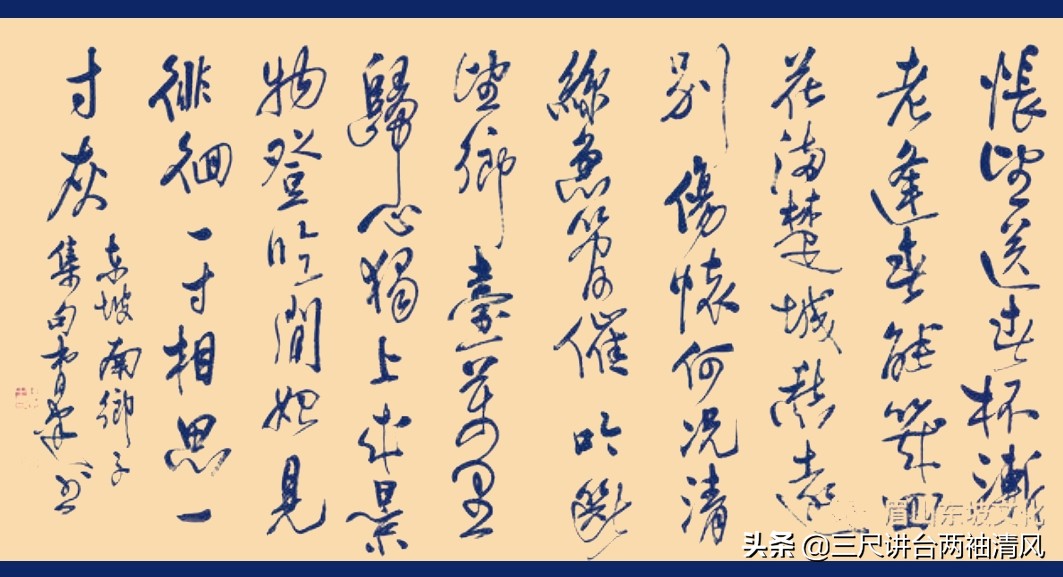 悵望送春杯漸
老逢春能幾回
花滿楚城愁遠
別傷懷何況清
絲急管催吟斷
望鄉臺萬里
歸心獨上來景
物登臨閒始見
徘徊一寸相思一
寸灰
东坡南鄉子
集句
眉山东坡文化
头条 @三尺讲台两袖清风